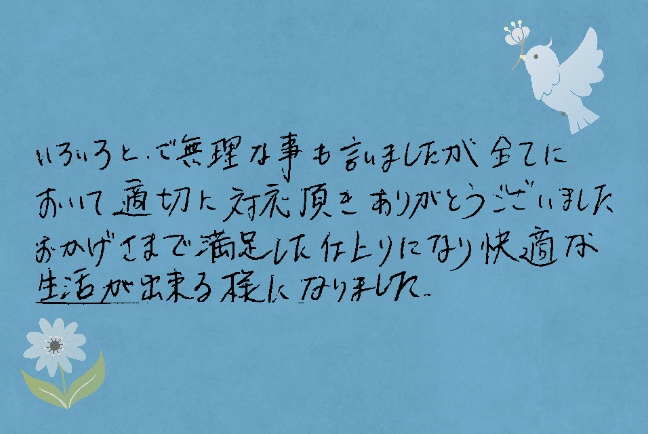 いろいろと、ご無理な事も言いましたが全てに
おいて適切に対応頂きありがとうございました
おかげさまで満足した仕上りになり快適な
生活が出来る様になりました。